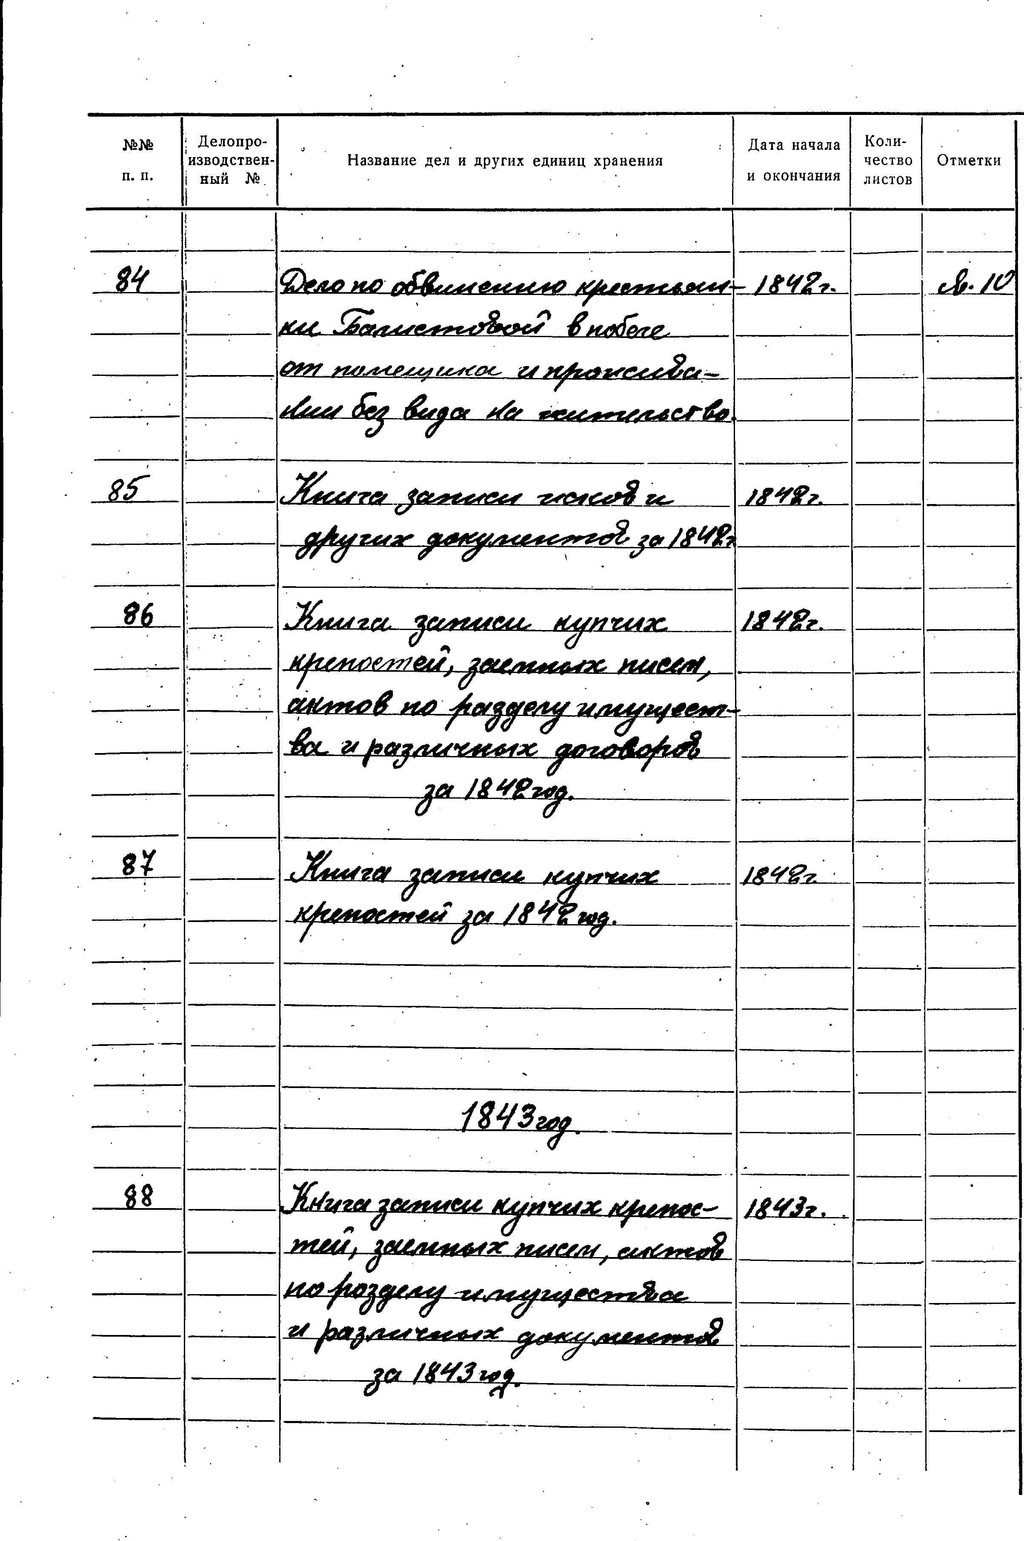 №№ п. п.
Делопро-
изводствен-
ный №
Название дел и других единиц хранения
Дата начала
и окончания
Коли-
чество
листов
Отметки
84 Дело по обвинению крестьян- 1842г.
ки Балистовой в побеге
от помещика и прожива-
нии без вида на жительство.
85 Книга записи исков и 1842г.
других документов за 1842г
86 Книга записи купчих 1842г.
крепостей, заемных писем,
актов по разделу имущест-
ва и различных договоров
за 1842 год.
87 Книга записи купчих 1842г.
крепостей за 1842 год.
1843 год.
88 Книга записи купчих крепос- 1843г.
тей, заемных писем, актов
по разделу имущества
и различных документов
за 1843 год.